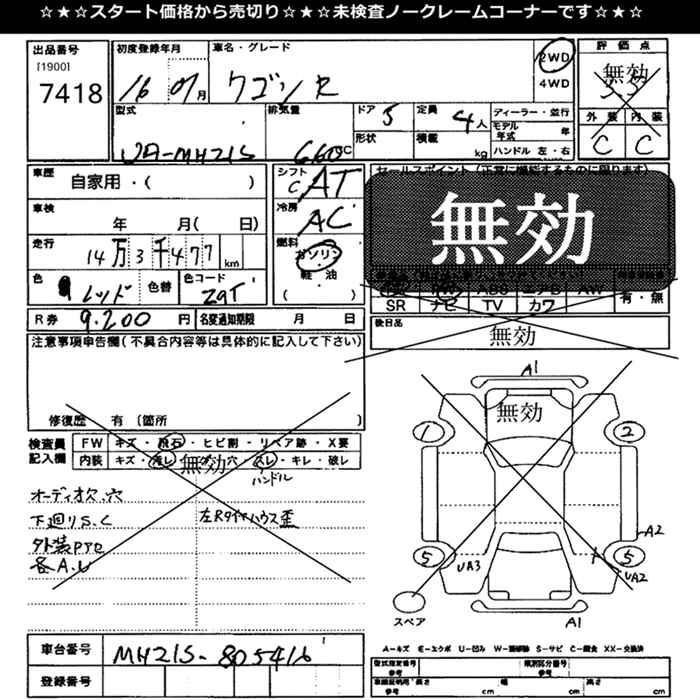 ☆★☆★スタート価格から売切り☆★☆★未検査ノークレームコーナーです☆★☆
出品番号 初度登録年月 車名・グレード 2WD 評価点
[1900] 4WD 無効
7418 16 07月 ワゴンR 3.5
型式 排気量 ドア 5 定員 4人 ディーラー・並行 外装 内装
モデル年式 年
形状 積載 kg ハンドル 左・右 C C
UA-MH21S 660CC
車歴 自家用・( ) シフト C AT セールスポイント(正常に機能するものに限ります)
車検 年 月( 日) 冷房 AC 無効
走行 14万3千477km 燃料 ガソリン
軽・油
( )
色 レッド 色替 色コード Z9T
SR ナビ TV カワ 有・無
R券 9,200円 名変通知期限 月 日 後日品 無効
注意事項申告欄(不具合内容等は具体的に記入して下さい)
修復歴 有 〔箇所 〕
検査員 FW キズ・飛石・ヒビ割・リペア跡・X要
記入欄 内装 キズ・汚レ・ ・穴・スレ・キレ・破レ
無効
ハンドル
オーディオ欠.穴
下廻りS.C 左Rタイヤハウス歪
外装Pアセ
各A.U
A1
無効
1 2
A2
5 UA3 5 UA2
スペア A1
A-キズ E-エクボ U-凹み W-補修跡 S-サビ C-腐食 XX-交換済
車台番号 MH21S-805416
登録番号
型式指定番号 参考 類別区分番号 参考
車両証明用 参考 長さ cm 幅 cm 高さ cm